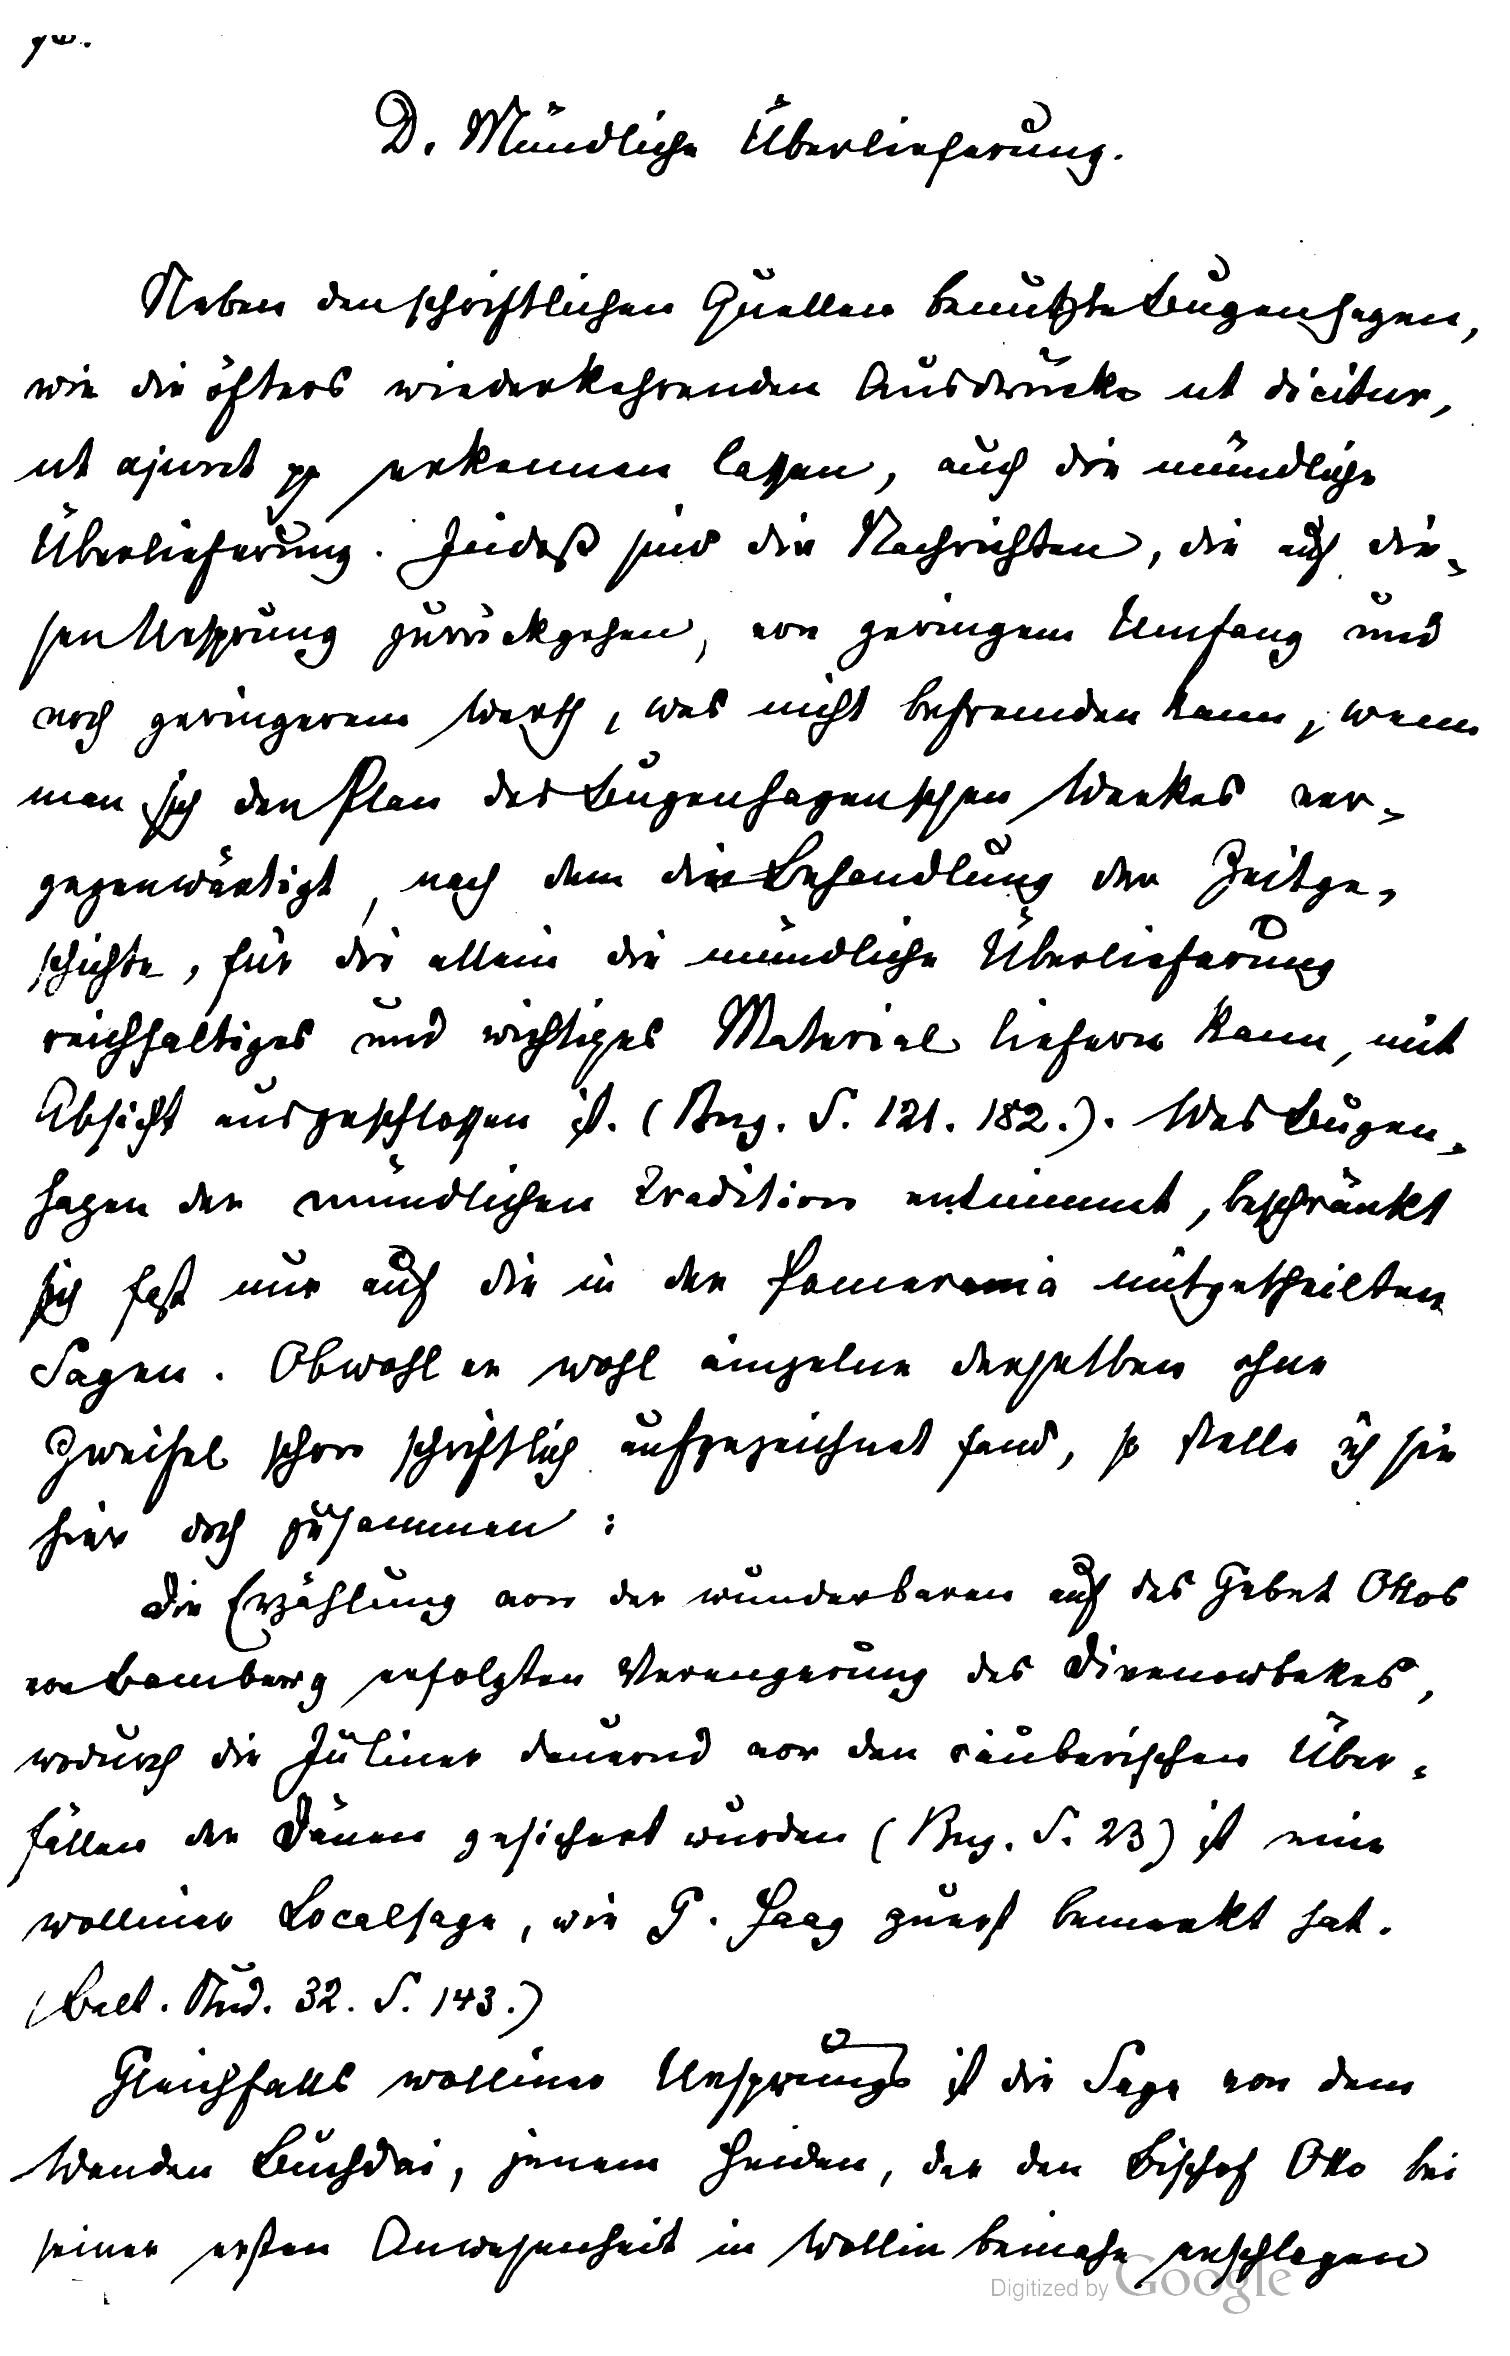 D. Mündliche Überlieferung.
Neben den schriftlichen Quellen benutzte Bugenhagen,
wie die öfters wiederkehrenden Ausdrücke ut dicitur,
ut ajunt pp erkennen lassen, auch die mündliche
Überlieferung. Indeß sind die Nachrichten, die auf die-
sen Ursprung zurückgehen, von geringem Umfang und
noch geringerem Werth, was nicht befremden kann, wenn
man sich den Plan des Bugenhagenschen Werkes ver-
gegenwärtigt, nach dem die Behandlung der Zeitge-
schichte, für die allein die mündliche Überlieferung
reichhaltiges und wichtiges Material liefern kann, mit
Absicht ausgeschlossen ist. (Bug. S. 121. 182.). Was Bugen-
hagen der mündlichen Tradition entnimmt, beschränkt
sich fast nur auf die in der Pomerania mitgetheilten
Sagen. Obwohl er wohl einzelne derselben ohne
Zweifel schon schriftlich aufgezeichnet fand, so stelle ich sie
hier doch zusammen:
Die Erzählung von der wunderbaren auf das Gebet Ottos
von Bamberg erfolgten Verengerung des Divenowbekes,
wodurch die Juliner dauernd vor den räuberischen Über-
fällen der Dänen gesichert wurden (Bug. S. 23) ist eine
wolliner Localsage, wie G. Haag zuerst bemerkt hat.
(Balt. Stud. 32. S. 143.)
Gleichfalls wolliner Ursprungs ist die Sage von dem
Wenden Buchdai, jenem Heiden, der den Bischof Otto bei
seiner ersten Anwesenheit in Wollin beinahe erschlagen
Digitized by Google